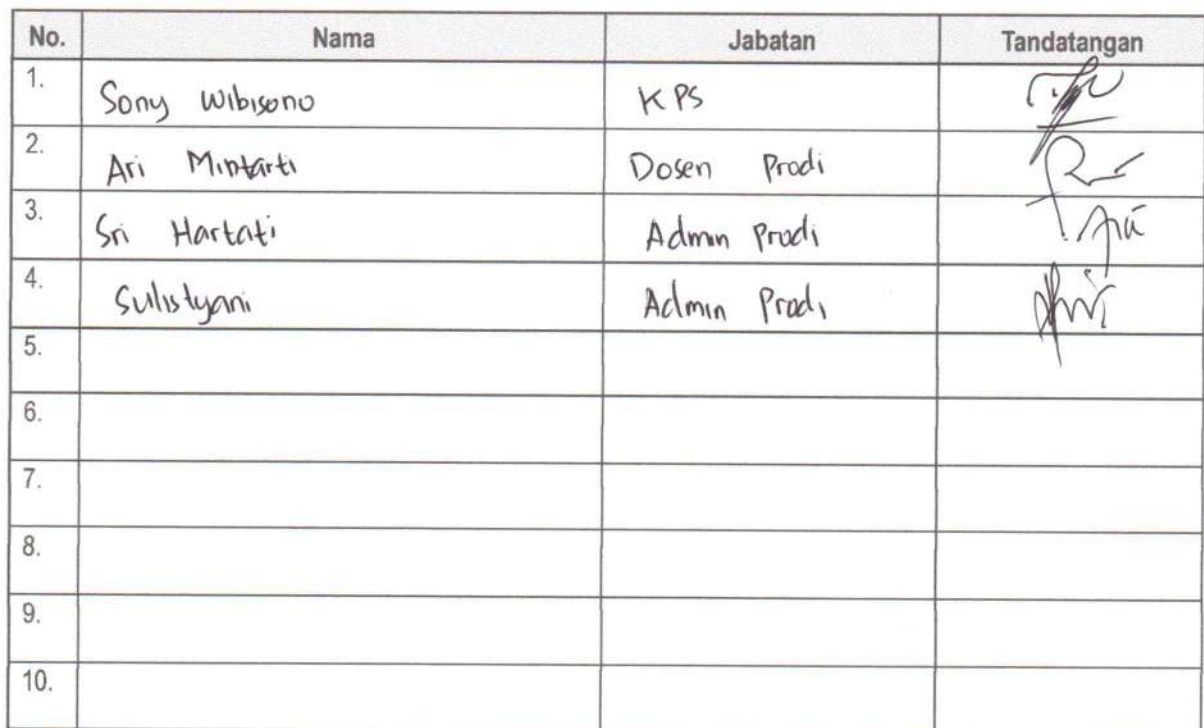 No. Nama Jabatan Tandatangan
1. Sony Wibisono KPS
2. Ari Mintarti Dosen Prodi
3. Sri Hartati Admin Prodi
4. Sulistyani Admin Prodi
5.
6.
7.
8.
9.
10.